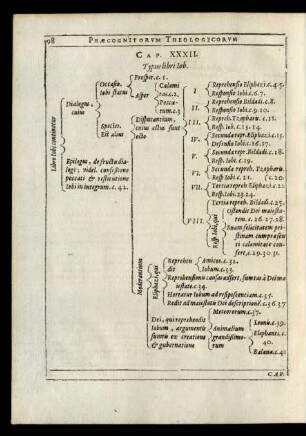 98 PRÆCOGNITORVM THEOLOGICORVM
CAP. XXXII.
Typus libri Iob.
Libro Iobi continetur
Dialogus, cuius
Occasio. Iobi status
Prosper. c. 1.
Asper
Calamitas. c. 2.
Peccatum. c. 3
Species. Est aliud
Disputantium, cuius actus sunt octo
I
Reprehensio Eliphazi. c. 4. 5.
Responsio Iobi. c. 6. 7.
II.
Reprehensio Bildadi. c. 8.
Responsio Iobi. c. 9. 10.
III.
Reprehs. Tzopharis. c. 11.
Resp. Iob. c. 13. 14.
IV.
Secunda repr. Eliphazi. c. 15.
Defensio Iobi. c. 16. 17.
V.
Secunda repr. Bildadi. c. 18.
Resp. Iobi. c. 19.
VI.
Secunda reprehs. Tzophari.
Resp. Iobi. c. 21. (c. 20.
VII.
Tertia repreh. Eliphazi. c. 22.
Resp. Iobi. c. 23. 24.
VIII.
Tertia repreh. Bildadi. c. 25.
Resp. Iobi, qui
Ostendit Dei maiestatem. c. 26. 27. 28.
Suam felicitatem pristinam cum præsenti calamitate confert, c. 29. 30. 31.
Moderantium
Eliphazi, qui
Reprehendit
Amicos. c. 32.
Iobum. c. 33.
Reprehensionis causas assert, sumtas à Dei maiestate. c. 34.
Hortatur Iobum ad resipiscentiam. c. 35.
Redit ad maiestatis Dei descriptionē. c. 36. 37
Dei, qui reprehendit Iobum, argumentis sumtis ex creatione & gubernatione
Meteororum. c. 37.
Animalium grandissimorum
Leonis. c. 39.
Elephanti. c. 40.
Balænæ. c. 41.
Epilogus, de fructu dialogi; videl. confessione peccati & restitutione Iobi in integrum. c. 42.
CAP.